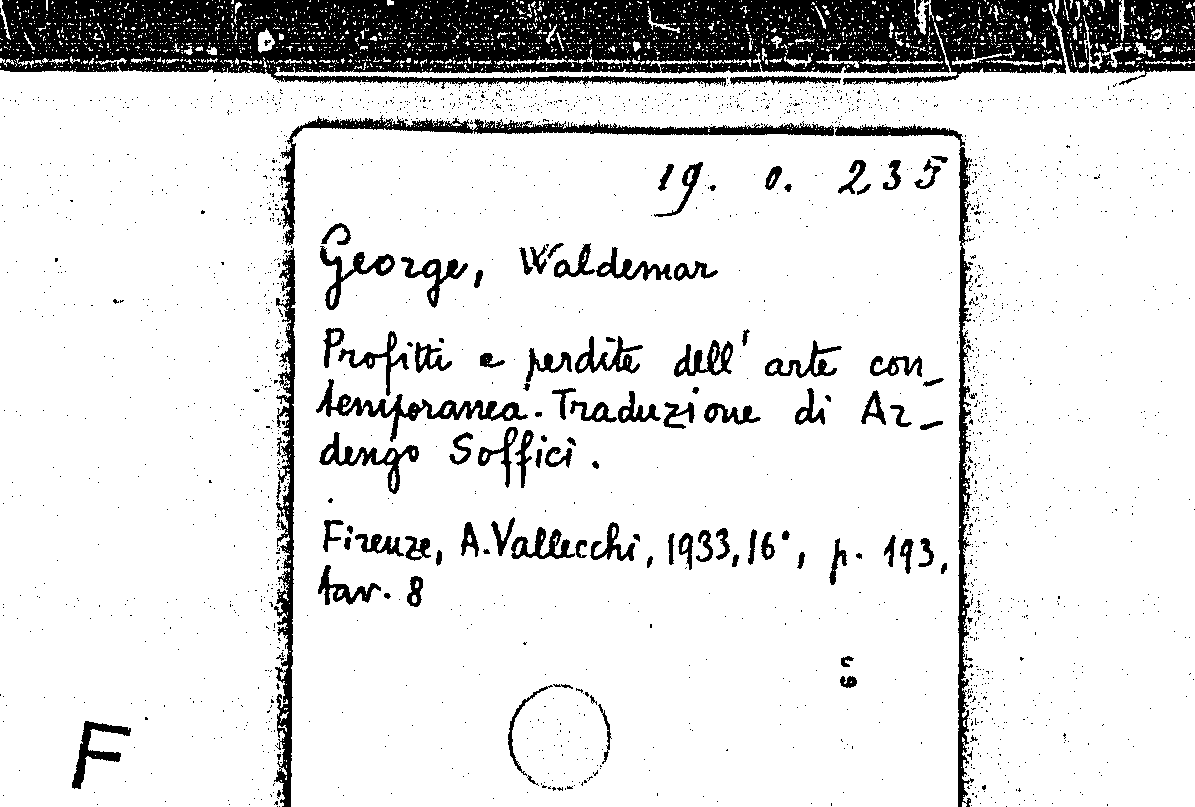 19. O. 235
George, Waldemar
Profitti e perdite dell' arte con_
temporanea. Traduzione di Ar_
dengo Soffici.
Firenze, A. Vallecchi, 1933, 16°, p. 193,
tav. 8
F